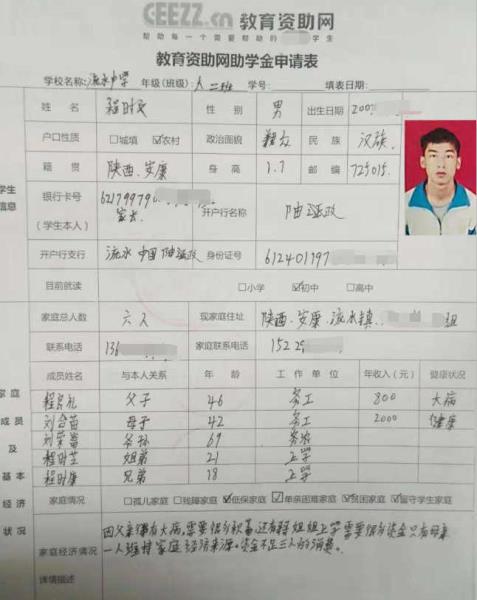 CEEZZ.cn 教育资助网
帮助每一个需要帮助的 学生
教育资助网助学金申请表
学校名称: 流水中学 年级(班级): 八二班 学号: 填表日期:
姓名 程时 性别 男 出生日期 200
户口性质 □城填 ☑农村 政治面貌 群众 民族 汉族
籍贯 陕西、安康 身高 1.7 邮编 725015
学生
信息
银行卡号
(学生本人)
621799790
开户行名称
开户行支行 流水 中国 身份证号 612401197
目前就读 □小学 ☑初中 □高中
家庭总人数 六人 现家庭住址 陕西、安康、流水镇、 组
联系电话 136 家庭联系电话 1522
成员姓名 与本人关系 年龄 工作单位 年收入(元) 健康状况
程 礼 父子 46 务工 800 大病
刘 苗 母子 42 务工 2000 健康
刘荣 爷孙 69 务农
程时 姐弟 21 上学
程时康 兄弟 18 上学
家庭
成员
及
基本
经济
状况
家庭情况 □孤儿家庭 □残障家庭 ☑低保家庭 ☑单亲困难家庭 ☑贫困家庭 ☑留守学生家庭
家庭经济情况
详情描述
因父亲 有大病,需要很多 ,还有 姐姐上学需要很多资金只有母亲
一人维持家庭 经济来源。资金不足三人的消费。